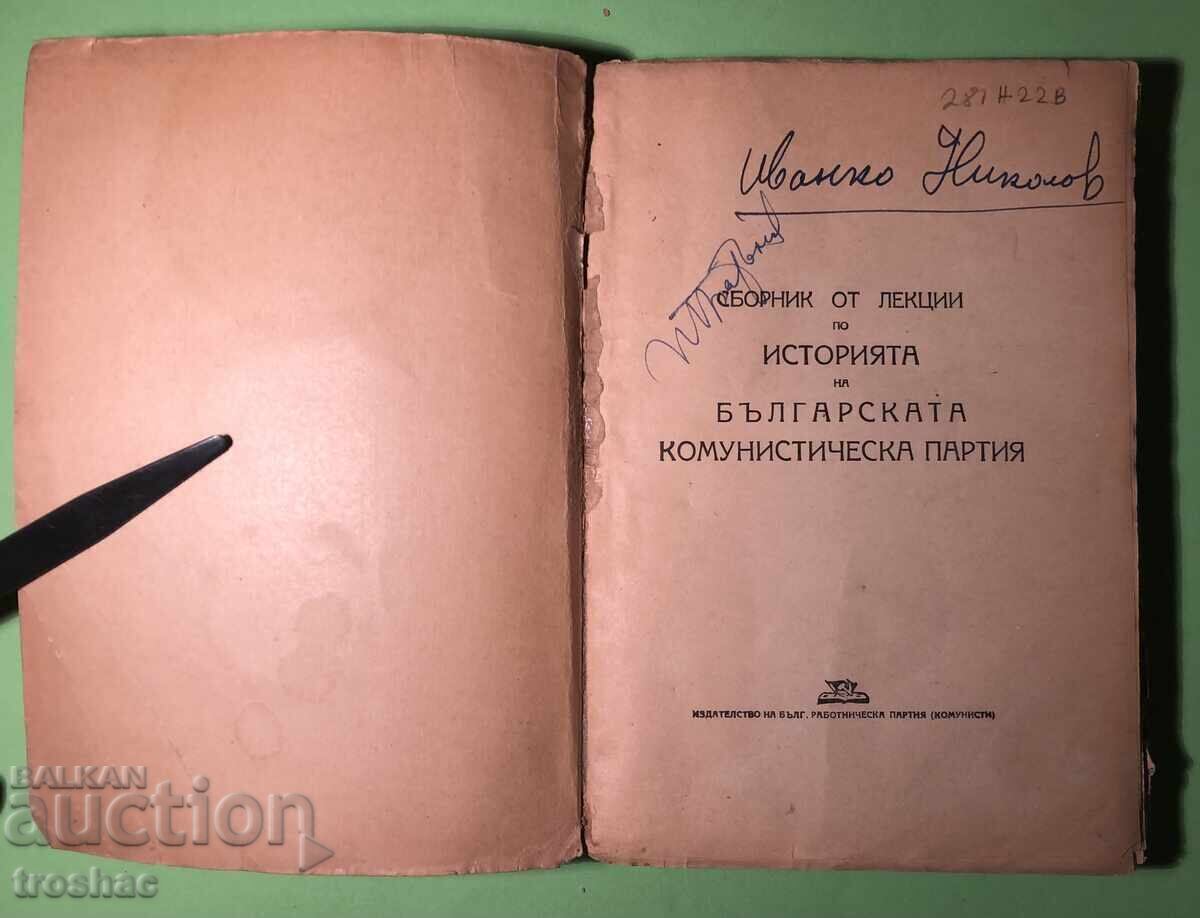 281 H 22B
Иванко Николов
СБОРНИК ОТ ЛЕКЦИИ
ПО
ИСТОРИЯТА
НА
БЪЛГАРСКАТА
КОМУНИСТИЧЕСКА ПАРТИЯ
ИЗДАТЕЛСТВО НА БЪЛГ. РАБОТНИЧЕСКА ПАРТИЯ (КОМУНИСТИ)
BALKAN
auction
troshac